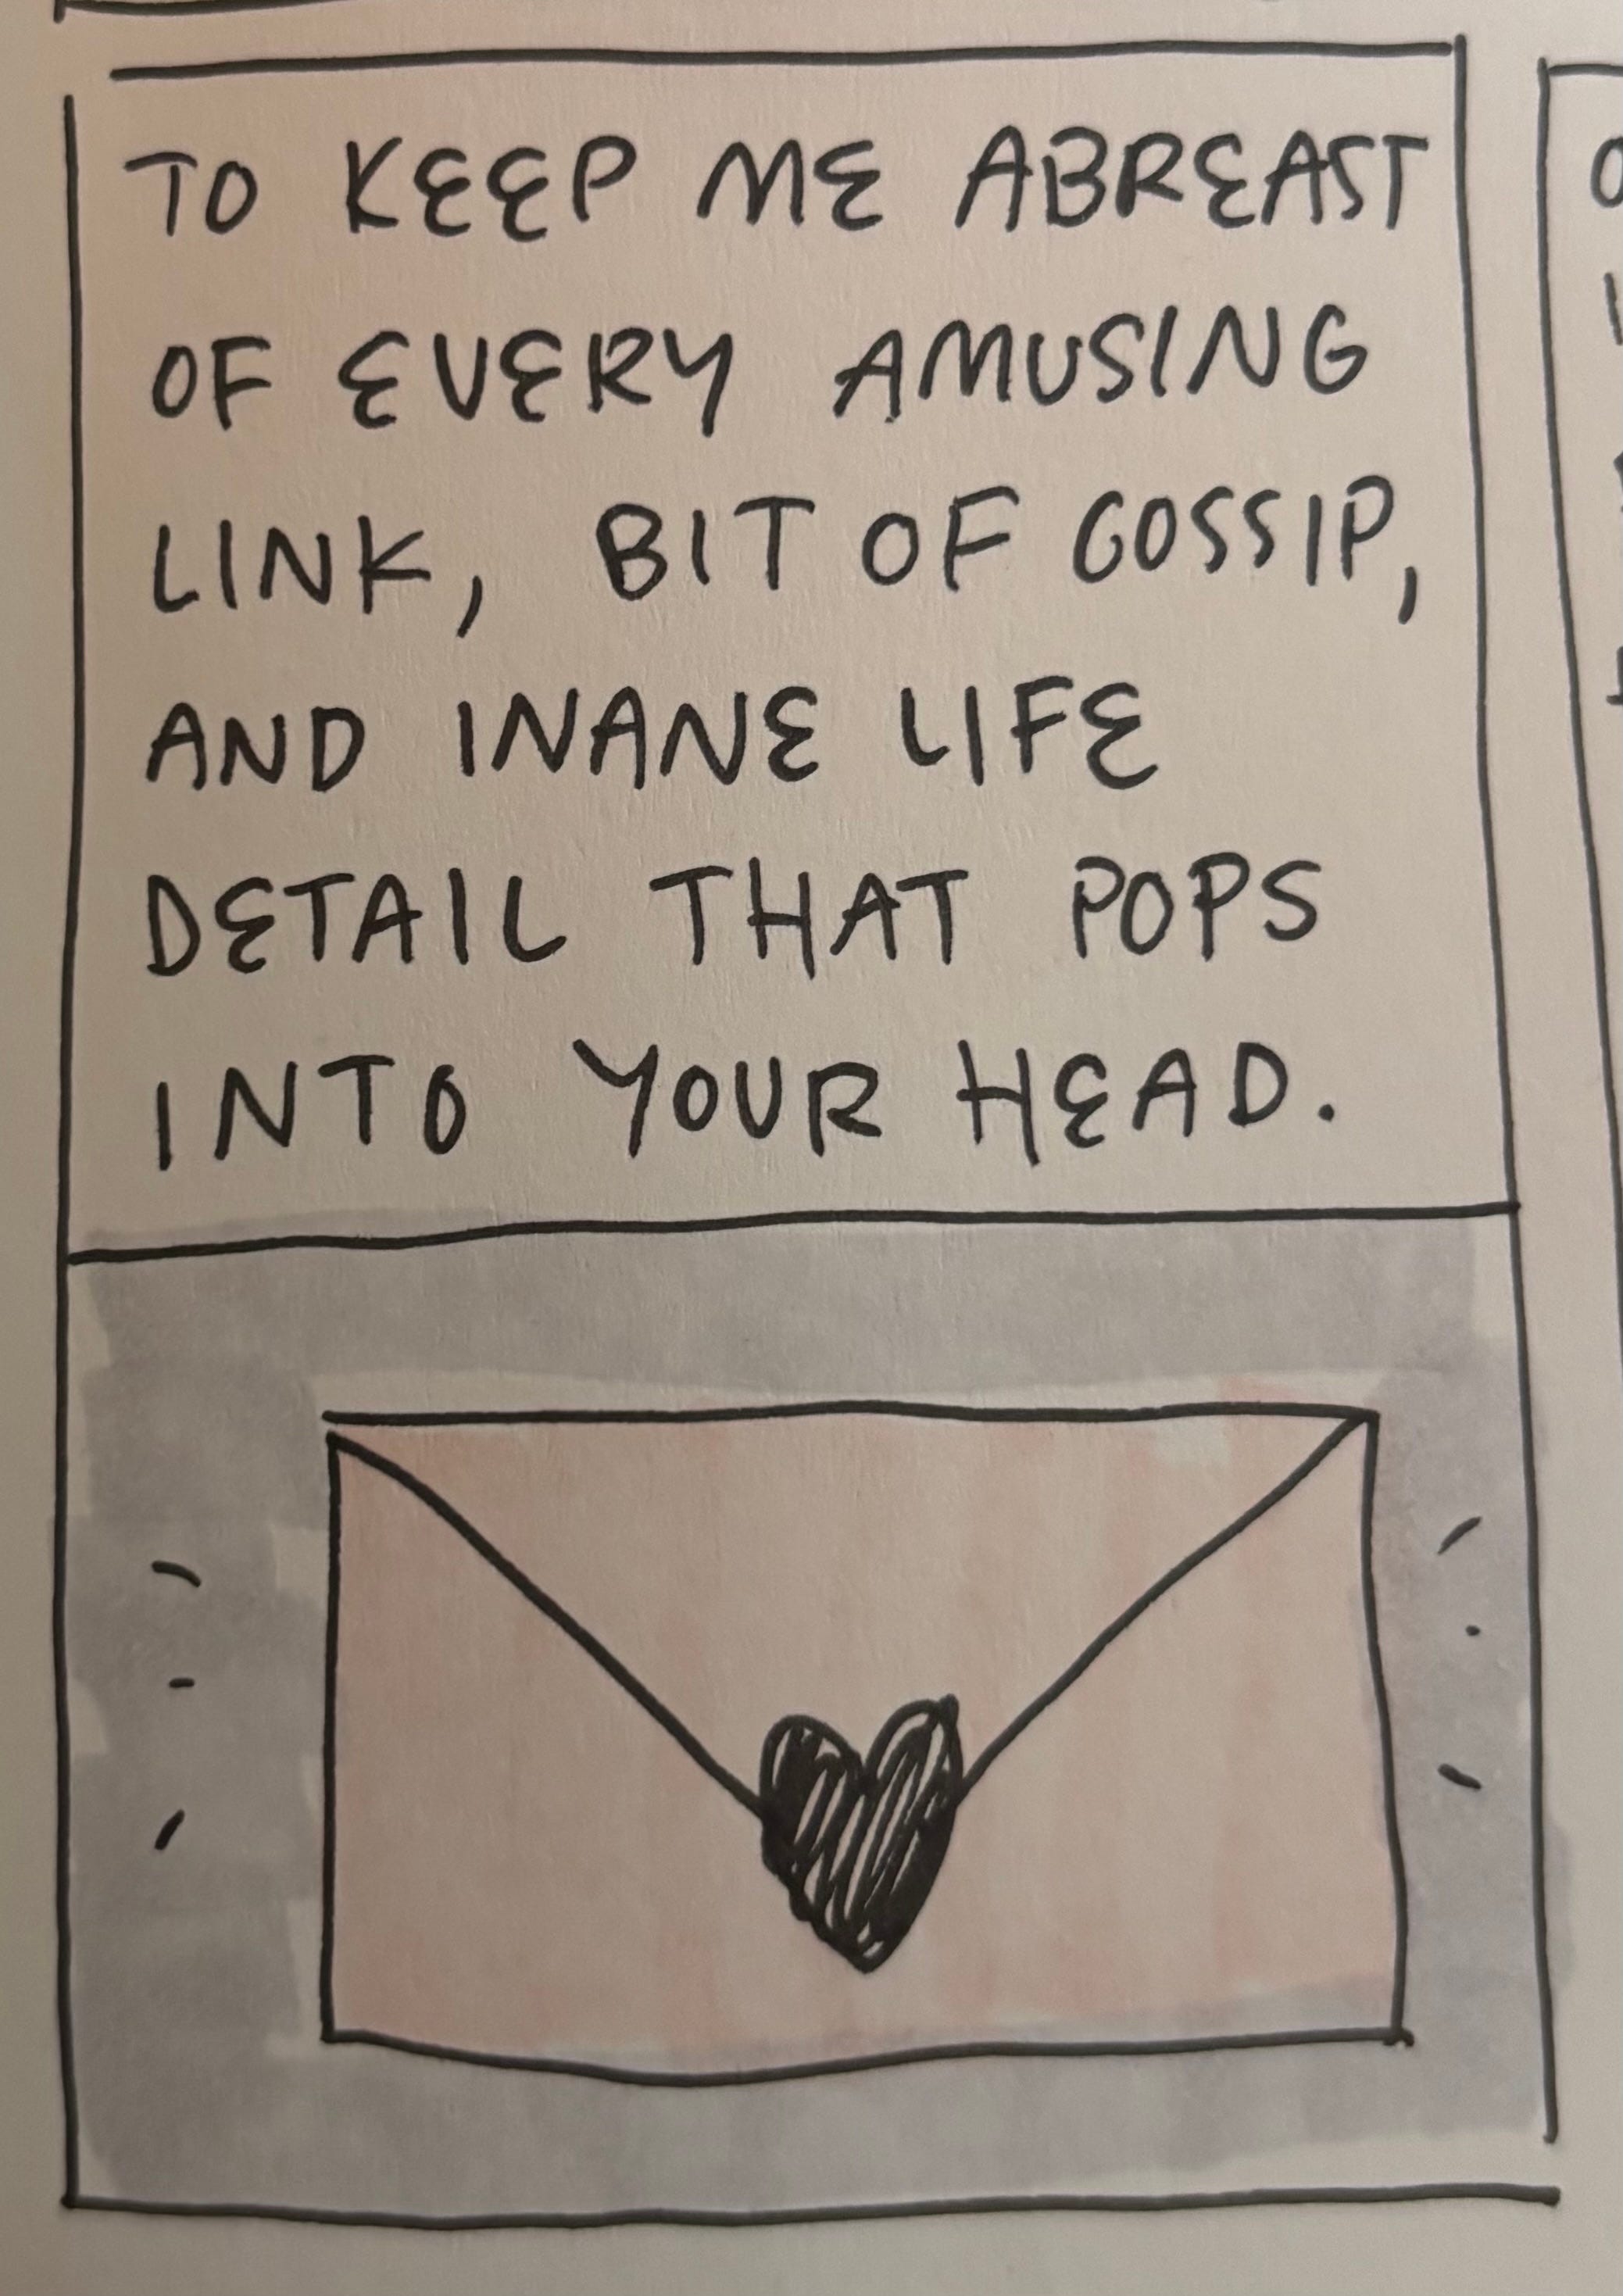 TO KEEP ME ABREAST
OF EVERY AMUSING
LINK, BIT OF GOSSIP,
AND INANE LIFE
DETAIL THAT POPS
INTO YOUR HEAD.